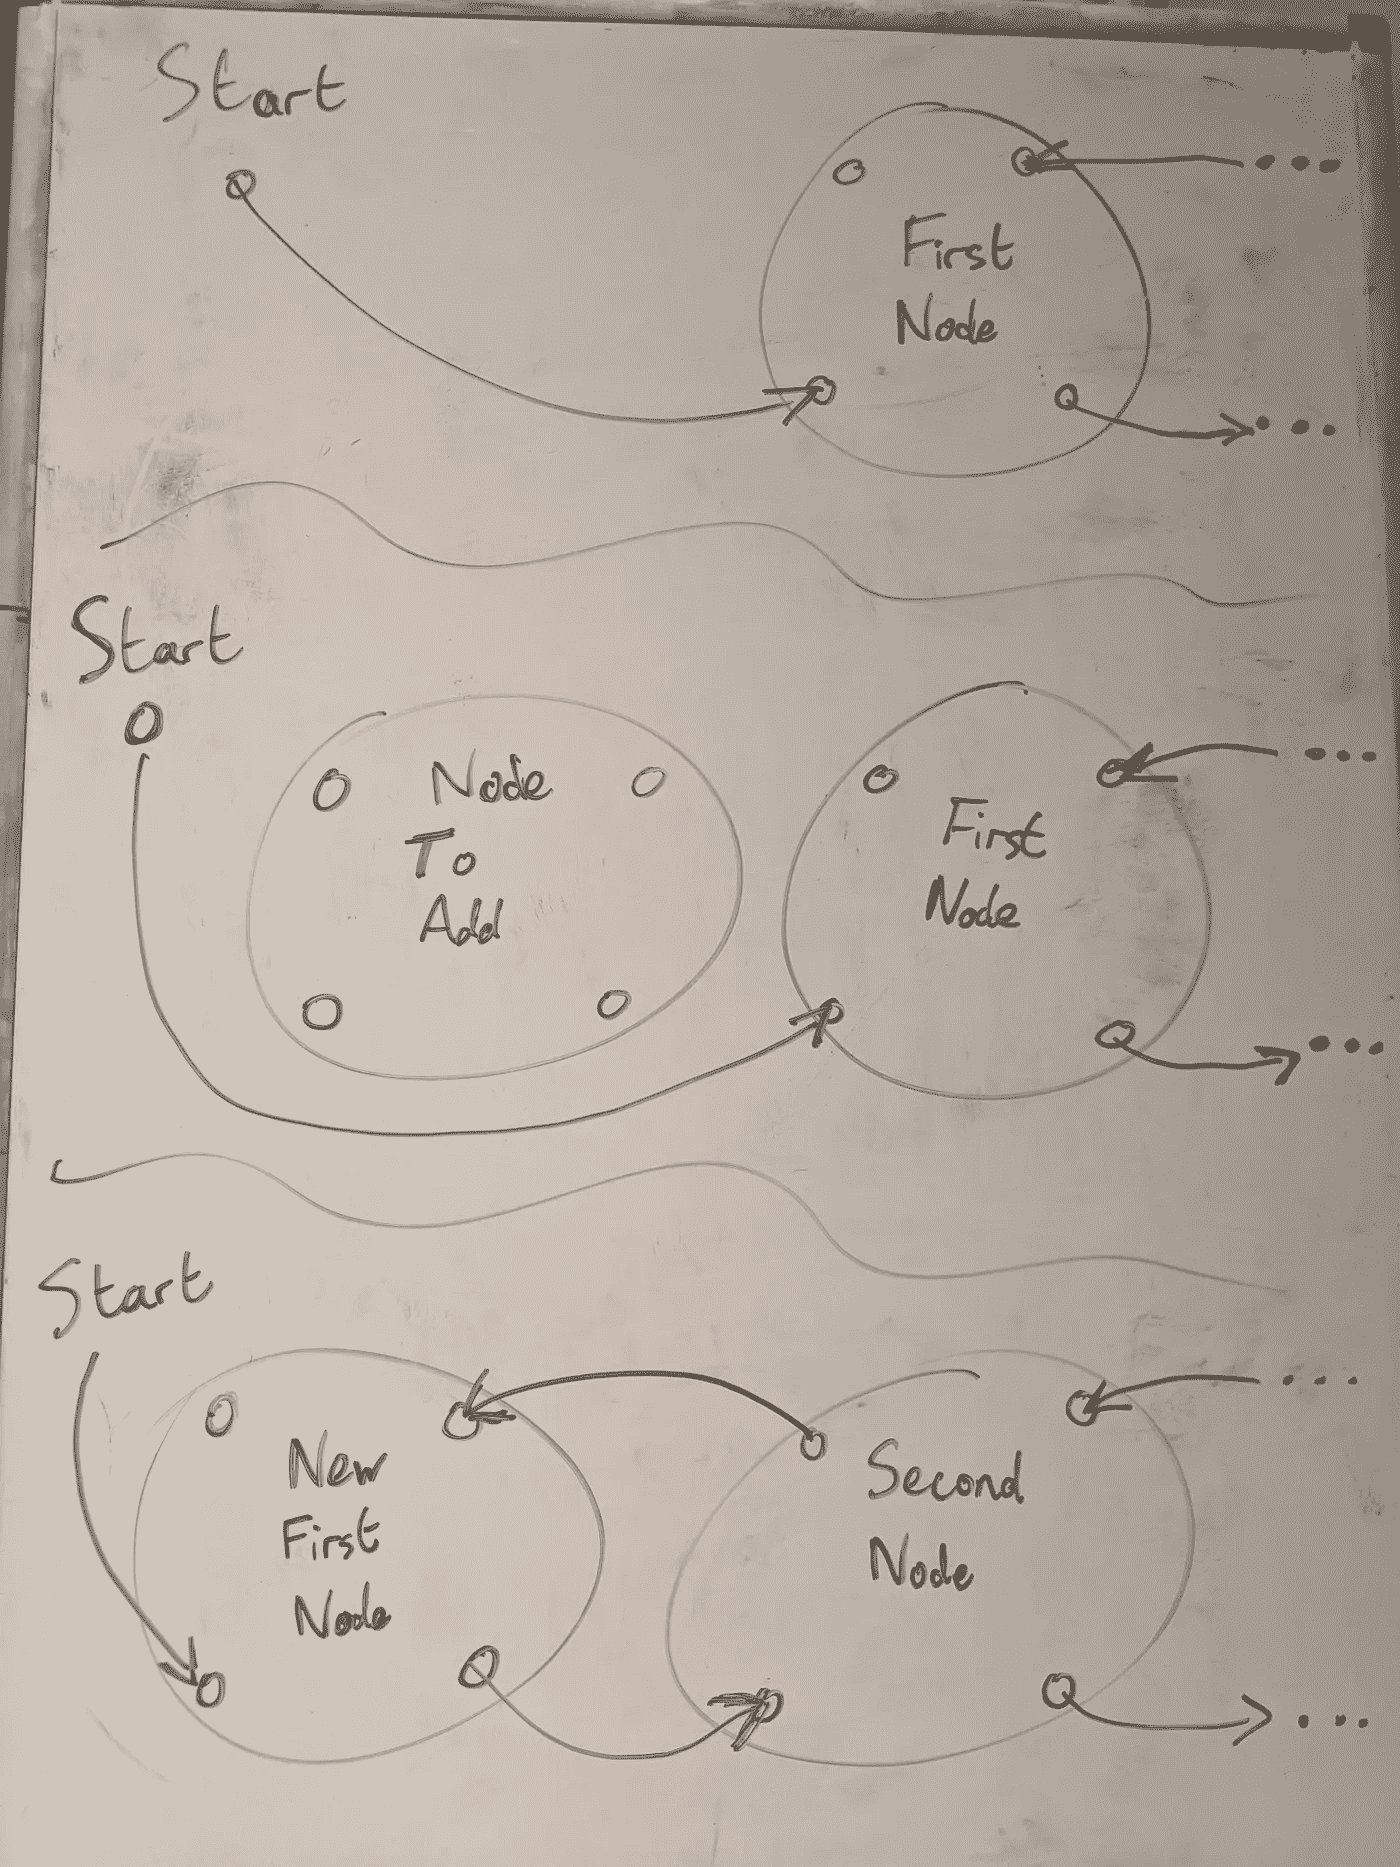 Start
First
Node
Start
Node
To
Add
First
Node
Start
New
First
Node
Second
Node